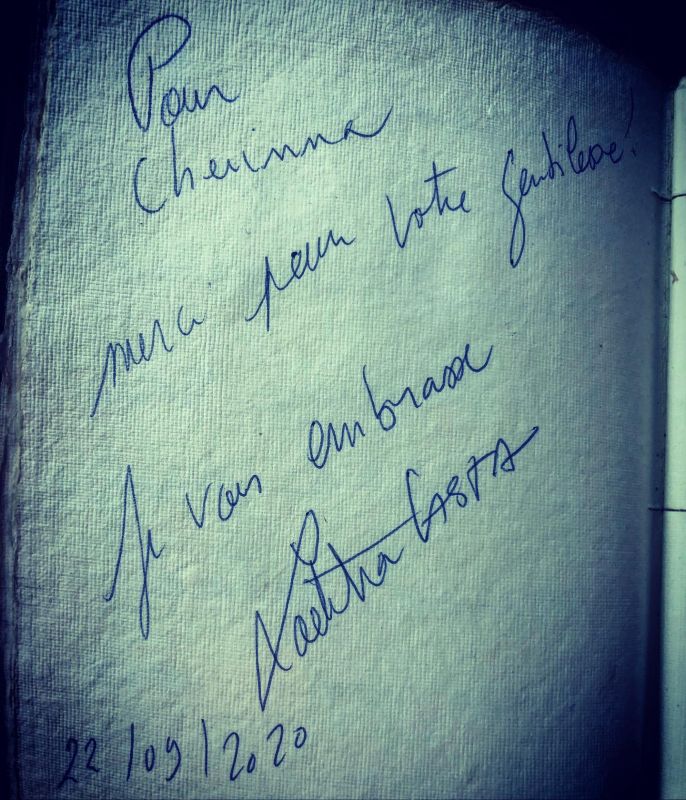 Pour
Cherinna
merci pour votre gentillesse!
Je vous embrasse
Laetitia CASTA
22/09/2020